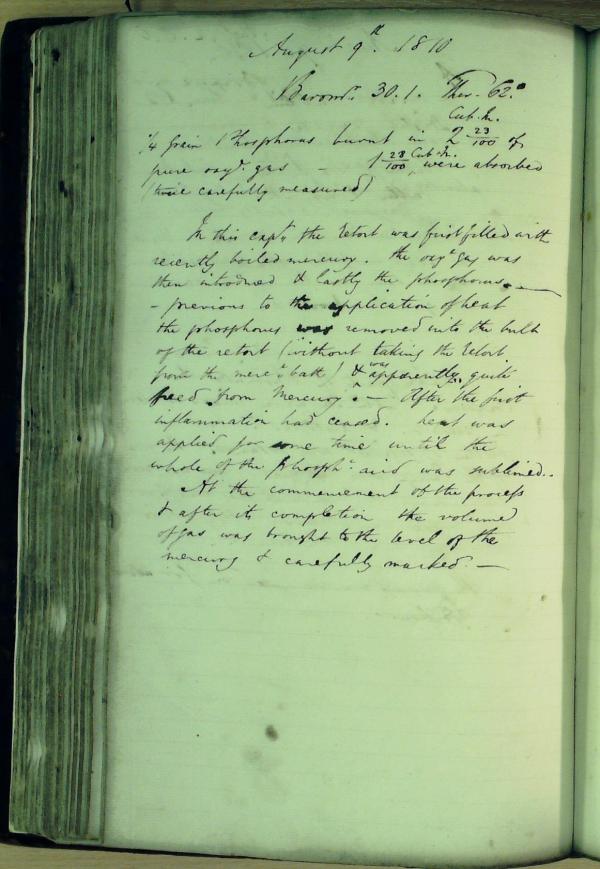 August 9th. 1810
Baromr. 30.1. Ther. 62°
Cub. In.
1/4 Grain Phosphorus burnt in 2 23/100 of
pure oxy. gas - 1 28/100 Cub. In. were absorbed
(twice carefully measured)
In this expt. the retort was first filled with
recently boiled mercury. the oxy. gas was
then introduced & lastly the phosphorus. —
- previous to the application of heat
the phosphorus was removed into the bulb
of the retort (without taking the retort
from the merc. bath) & was apparently quite
freed from Mercury. — After the first
inflammation had ceased. heat was
applied for some time until the
whole of the phosph. acid was sublimed..
At the commencement of the process
& after its completion the volume
of gas was brought to the level of the
mercury & carefully marked. —